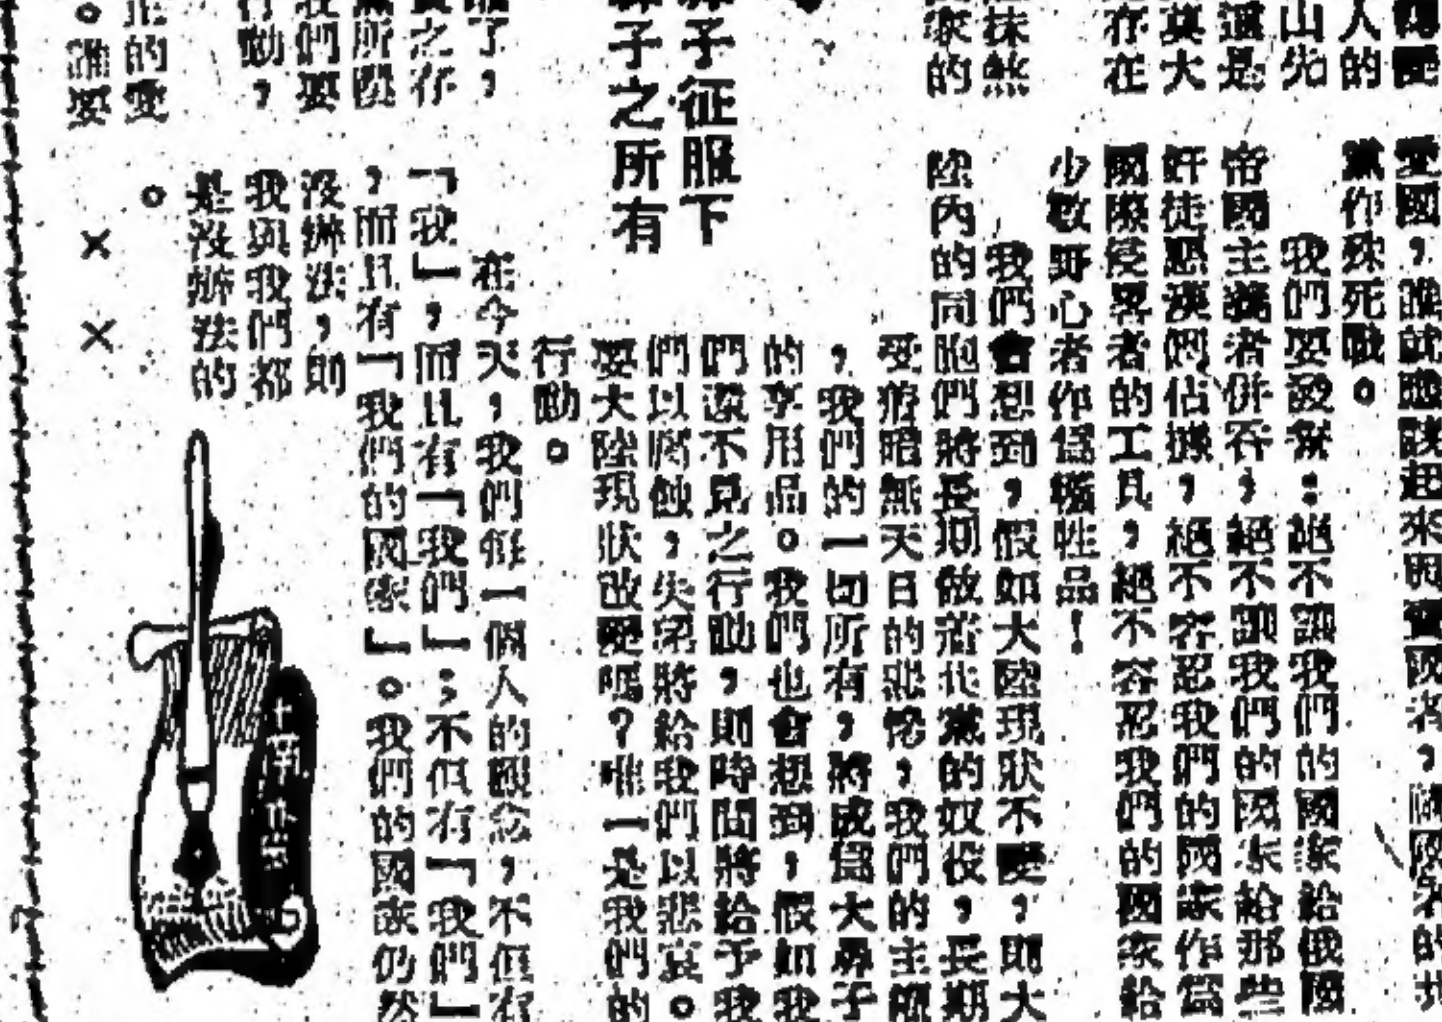 變
人的
山先
還是
莫大
存在
抹煞
家的
鼻子征服下
鼻子之所有
了，
之存
所
我們要
行動，
的愛
。誰要
愛國，誰就應該起來與賣國者，禍國者的共
黨作殊死戰。
我們要發誓：絕不讓我們的國家給俄國
帝國主義者併吞，絕不讓我們的國家給那些
奸徒惡漢們佔據，絕不容忍我們的國家作爲
國際侵畧者的工具，絕不容忍我們的國家給
少數野心者作爲犧牲品！
我們會想到，假如大陸現狀不變，則大
陸內的同胞們將長期做着共黨的奴役，長期
受着暗無天日的悲慘，我們的主權
，我們的一切所有，將成爲大鼻子
的享用品。我們也會想到，假如我
們還不見之行動，則時間將給予我
們以腐蝕，失望將給我們以悲哀。
要大陸現狀改變嗎？唯一是我們的
行動。
在今天，我們每一個人的觀念，不但有
「我」，而且有「我們」；不但有「我們」
，而且有「我們的國家」。我們的國家仍然
沒辦法，則
我與我們都
是沒辦法的
。
× ×